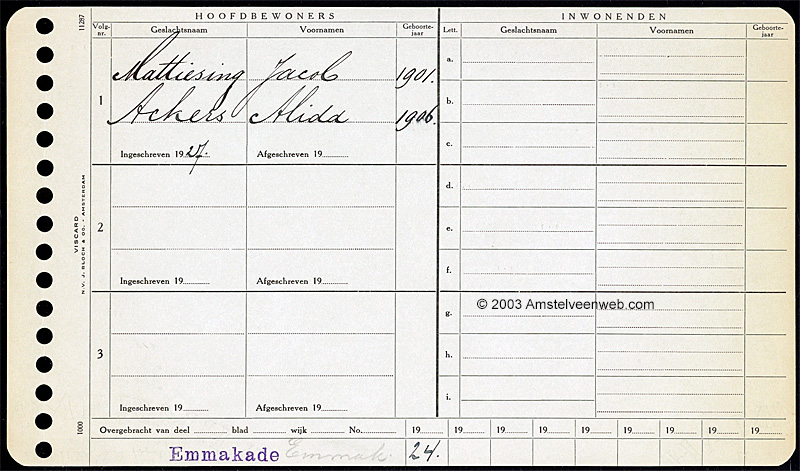 HOOFDBEWONERS
INWONENDEN
11287
Volg-
nr.
Geslachtsnaam
Voornamen
Geboorte-
jaar
Lett.
Geslachtsnaam
Voornamen
Geboorte-
jaar
1
Mattiesing Jacob 1901.
Ackers Alida 1906.
Ingeschreven 1927.
Afgeschreven 19
2
Ingeschreven 19
Afgeschreven 19
3
Ingeschreven 19
Afgeschreven 19
a.
b.
c.
d.
e.
f.
g.
h.
i.
© 2003 Amstelveenweb.com
VISCARD
N.V. J. BLOCH & CO. - AMSTERDAM
1000
Overgebracht van deel blad wijk No. 19 19 19 19 19 19 19 19
Emmakade Emmak. 24.